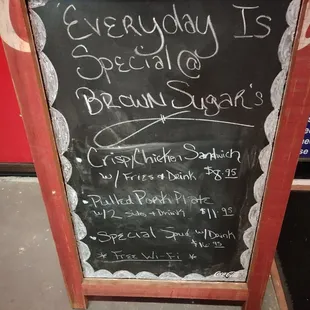 Everyday Is
Special @
Brown Sugar's
• Crispy Chicken Sandwich
w/ Fries + Drink $8.95
• Pulled Pork Plate
w/ 2 Sides + Drink $11.95
• Special Spud w/ Drink
* Free Wi-Fi *
Coca-Cola